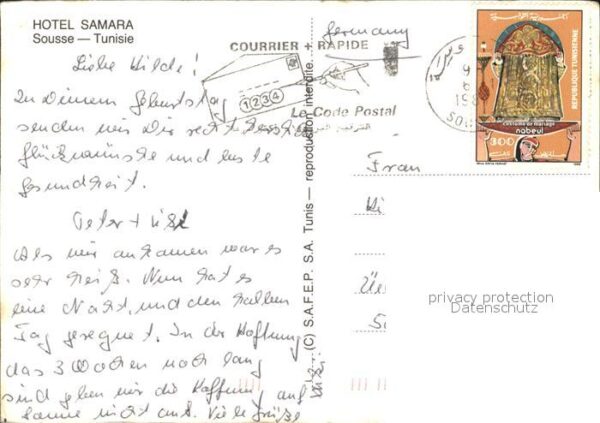 HOTEL SAMARA
Sousse — Tunisie
Germany
COURRIER + RAPIDE
1234
Le Code Postal
REPUBLIQUE TUNISIENNE
Costume de mariage
nabeul
300
Liebe Hilde!
Zu Deinem Geburtstag
senden wir Dir recht herzliche
Glückwünsche und beste
Gesundheit.
Peter +
Als wir ankamen war es
sehr heiß. Nun hat es
eine Nacht und den halben
Tag geregnet. In der Hoffnung
das 3 Wochen noch lang
sind geben wir die Hoffnung auf
Sonne nicht auf. Viele Grüße
(C) S.A.F.E.P. S.A. Tunis — reproduction interdite
Frau
privacy protection
Datenschutz